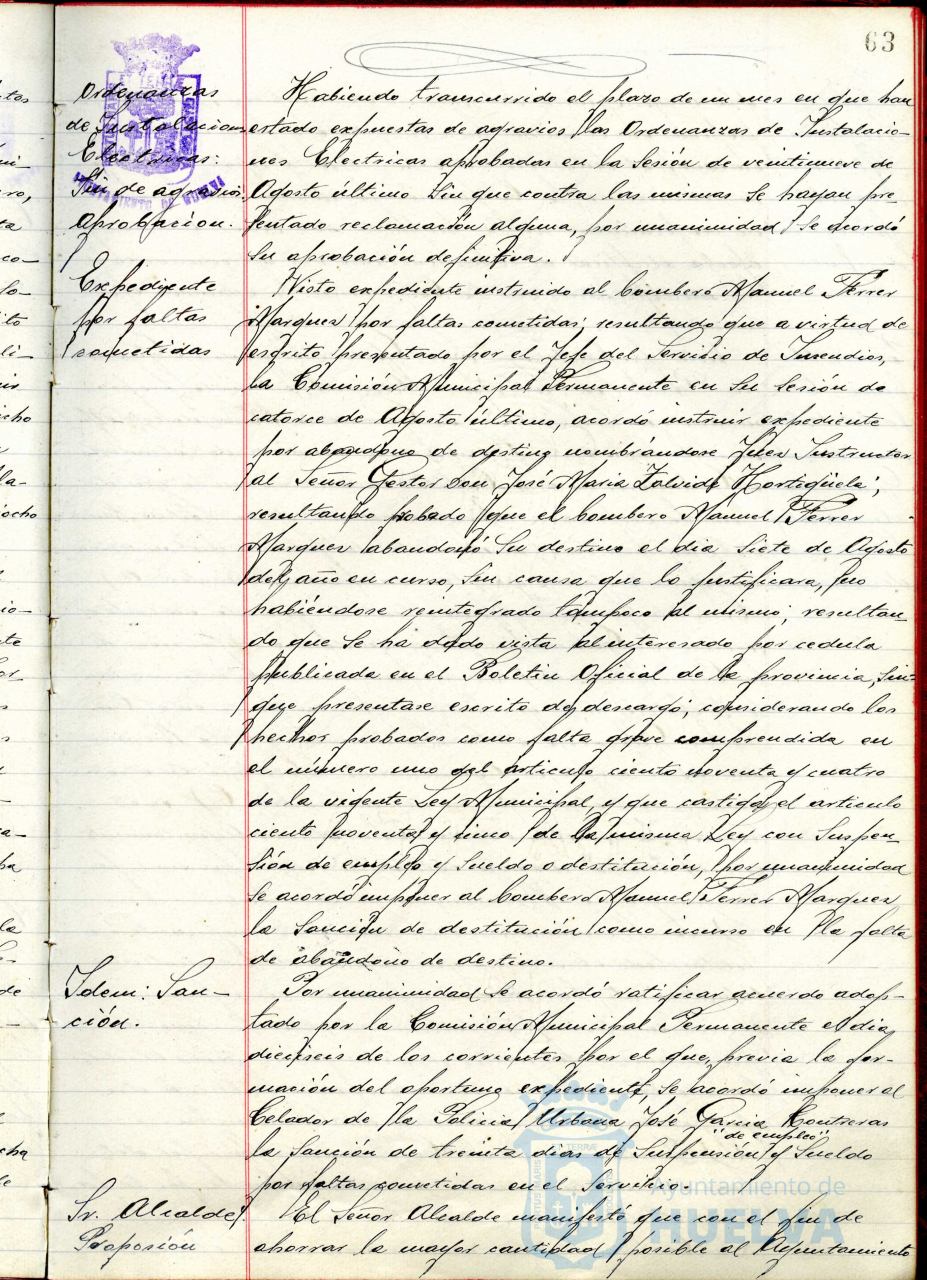 63
Ordenanzas
de Instalaciones
Electricas:
Sin de agravios.
Aprobacion.
Habiendo transcurrido el plazo de un mes en que han
estado expuestas de agravios las Ordenanzas de Instalacio-
nes Electricas aprobadas en la Sesión de veintinueve de
Agosto último Sin que contra las mismas se hayan pre-
sentado reclamación alguna, por unanimidad se acordó
su aprobación definitiva.
Expediente
por faltas
cometidas
Visto expediente instruido al bombero Manuel Ferrer
Marquez por faltas cometidas; resultando que a virtud de
escrito presentado por el Jefe del Servicio de Incendios,
la Comisión Municipal Permanente en su Sesión de
catorce de Agosto último, acordó instruir expediente
por abandono de destino nombrándose Juez Instructor
al Señor Gestor Don José Maria Zalvide Hortigüela;
resultando probado que el bombero Manuel Ferrer
Marquez abandonó su destino el dia siete de Agosto
del año en curso, sin causa que lo justificara, no
habiéndose reintegrado tampoco al mismo; resultan
do que se ha dado vista al interesado por cedula
publicada en el Boletin Oficial de la provincia, sin-
que presentase escrito de descargo; considerando los
hechos probados como falta grave comprendida en
el número uno del articulo ciento noventa y cuatro
de la vigente Ley Municipal, y que castiga el articulo
ciento noventa y cinco de la misma Ley con Suspen-
sión de empleo y Sueldo o destitución, por unanimidad
se acordó imponer al bombero Manuel Ferrer Marquez
la Sanción de destitución como incurso en la falta
de abandono de destino.
Idem: San-
ción.
Por unanimidad se acordó ratificar acuerdo adop-
tado por la Comisión Municipal Permanente el dia
dieciseis de los corrientes por el que, previa la for-
mación del oportuno expediente, se acordó imponer al
Celador de la Policia Urbana José Garcia Contreras
"de empleo"
la Sanción de treinta dias de Suspensión y Sueldo
por faltas cometidas en el Servicio.
Sr. Alcalde.
Proposión
El Señor Alcalde manifestó que con el fin de
ahorrar la mayor cantidad posible al Ayuntamiento
Ayuntamiento de
HUELVA